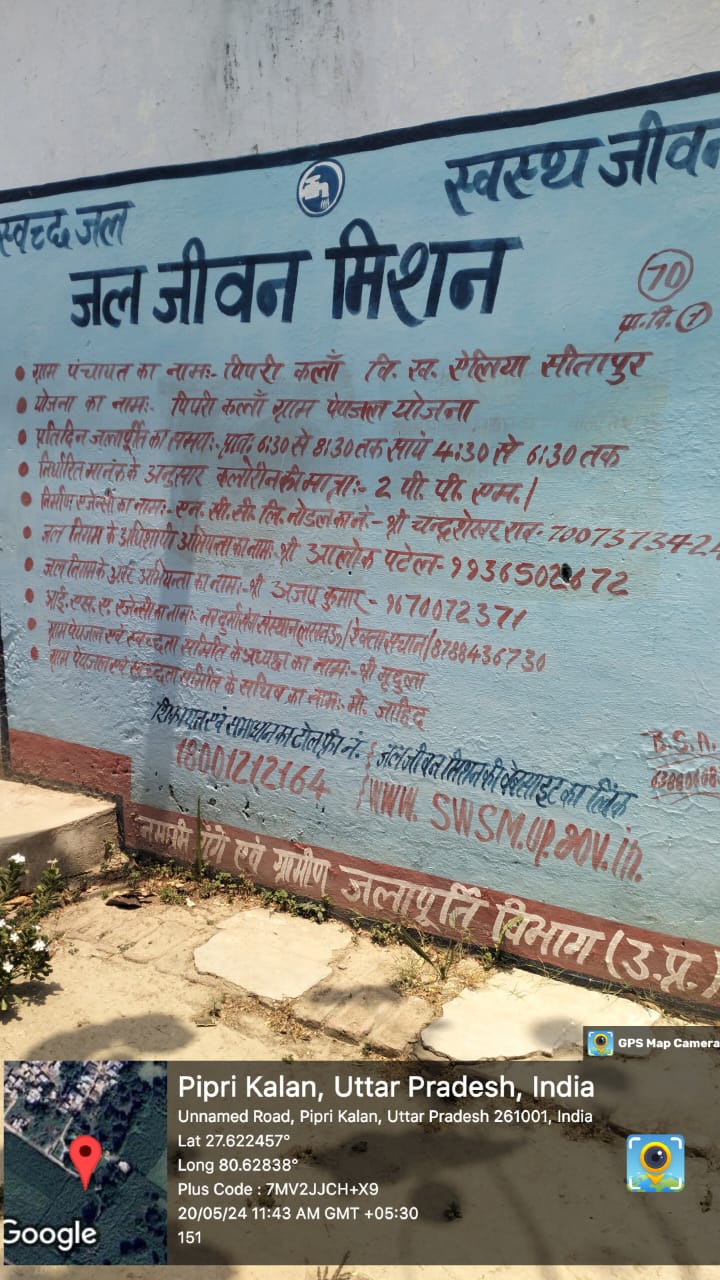 स्वच्छ जल
स्वस्थ जीवन
जल जीवन मिशन
70
प्रा.वि. 7
ग्राम पंचायत का नामः- पिपरी कलाँ वि. ख. ऐलिया सीतापुर
योजना का नामः- पिपरी कलाँ ग्राम पेयजल योजना
प्रतिदिन जलापूर्ति का समयः- प्रातः 6:30 से 8:30 तक सायं 4:30 से 6:30 तक
निर्धारित मानक के अनुसार क्लोरीन की मात्राः- 2 पी. पी. एम.।
निर्माण एजेन्सी का नामः- एन. सी. सी. लि. नोडल का नं.- श्री चन्द्रशेखर राव- 700737342
जल निगम के अधिशाषी अभियन्ता का नामः- श्री आलोक पटेल- 9936502672
जल निगम के अवर अभियन्ता का नामः- श्री अजय कुमार - 9670072371
आई. एस. ए. एजेन्सी का नामः- नव दुर्गा सेवा संस्थान (लखनऊ) 8788436730
ग्राम पेयजल एवं स्वच्छता समिति के अध्यक्ष का नामः- श्री मृदुला
ग्राम पेयजल एवं स्वच्छता समिति के सचिव का नामः- मो. जाहिद
शिकायत एवं समाधान का टोल फ्री नं.
18001212164
जल जीवन मिशन की वेबसाइट का लिंक
www. SWSM.up.gov.in.
B.S.A.
नमामि गंगे एवं ग्रामीण जलापूर्ति विभाग (उ.प्र.)
GPS Map Camera
Pipri Kalan, Uttar Pradesh, India
Unnamed Road, Pipri Kalan, Uttar Pradesh 261001, India
Lat 27.622457°
Long 80.62838°
Plus Code : 7MV2JJCH+X9
20/05/24 11:43 AM GMT +05:30
151
Google